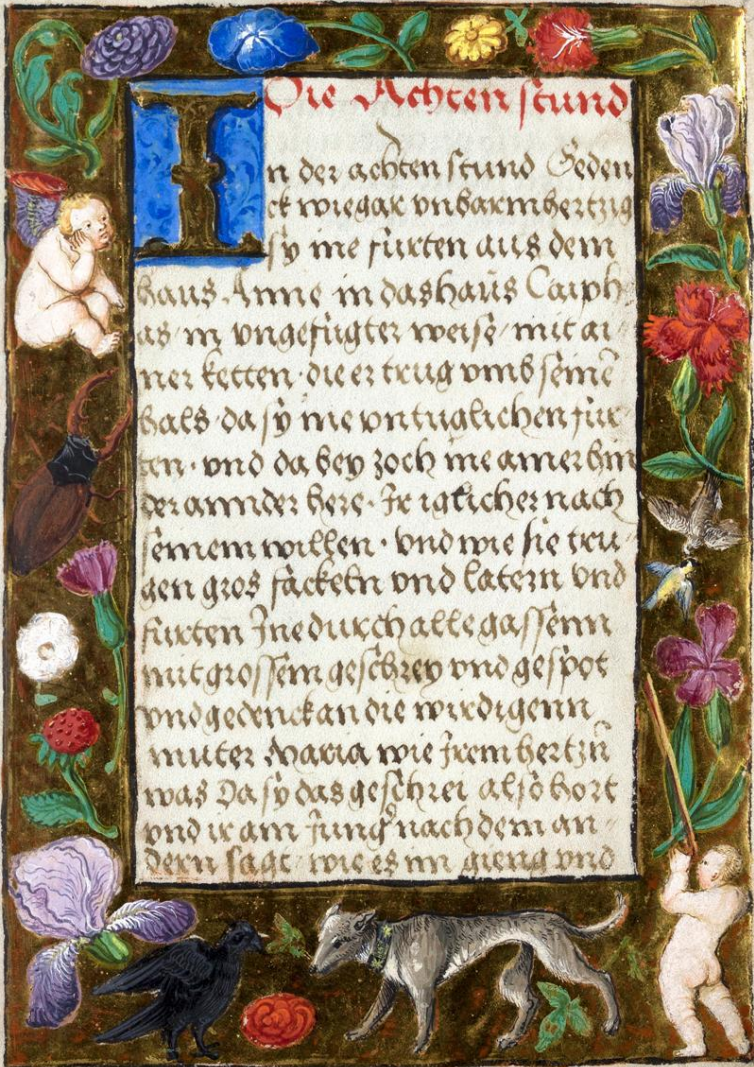 Die Achten stund
In der achten stund Geden
ck wie gar vnbarmhertzig
sy ine fürten aus dem
haus Anne in das haüs Caiph
as in vngefügter weise mit ai
ner ketten · die er trug vmb seinē
hals · da sy ine vntuglichen für
ten · vnd da bey zoch ine ainer hin
der annder here · Ir iglicher nach
seinem willen · Vnd wie sie tru
gen gros fackeln vnd latern vnd
fürten Ine durch alle gassenn
mit grossem geschrey vnd gespöt
vnd gedenck an die wirdigenn
muter Maria wie Irem hertzn̄
was Da sy das geschrei also hort
vnd ir ain Jung nach dem an
dern sagt wie es im gieng vnd